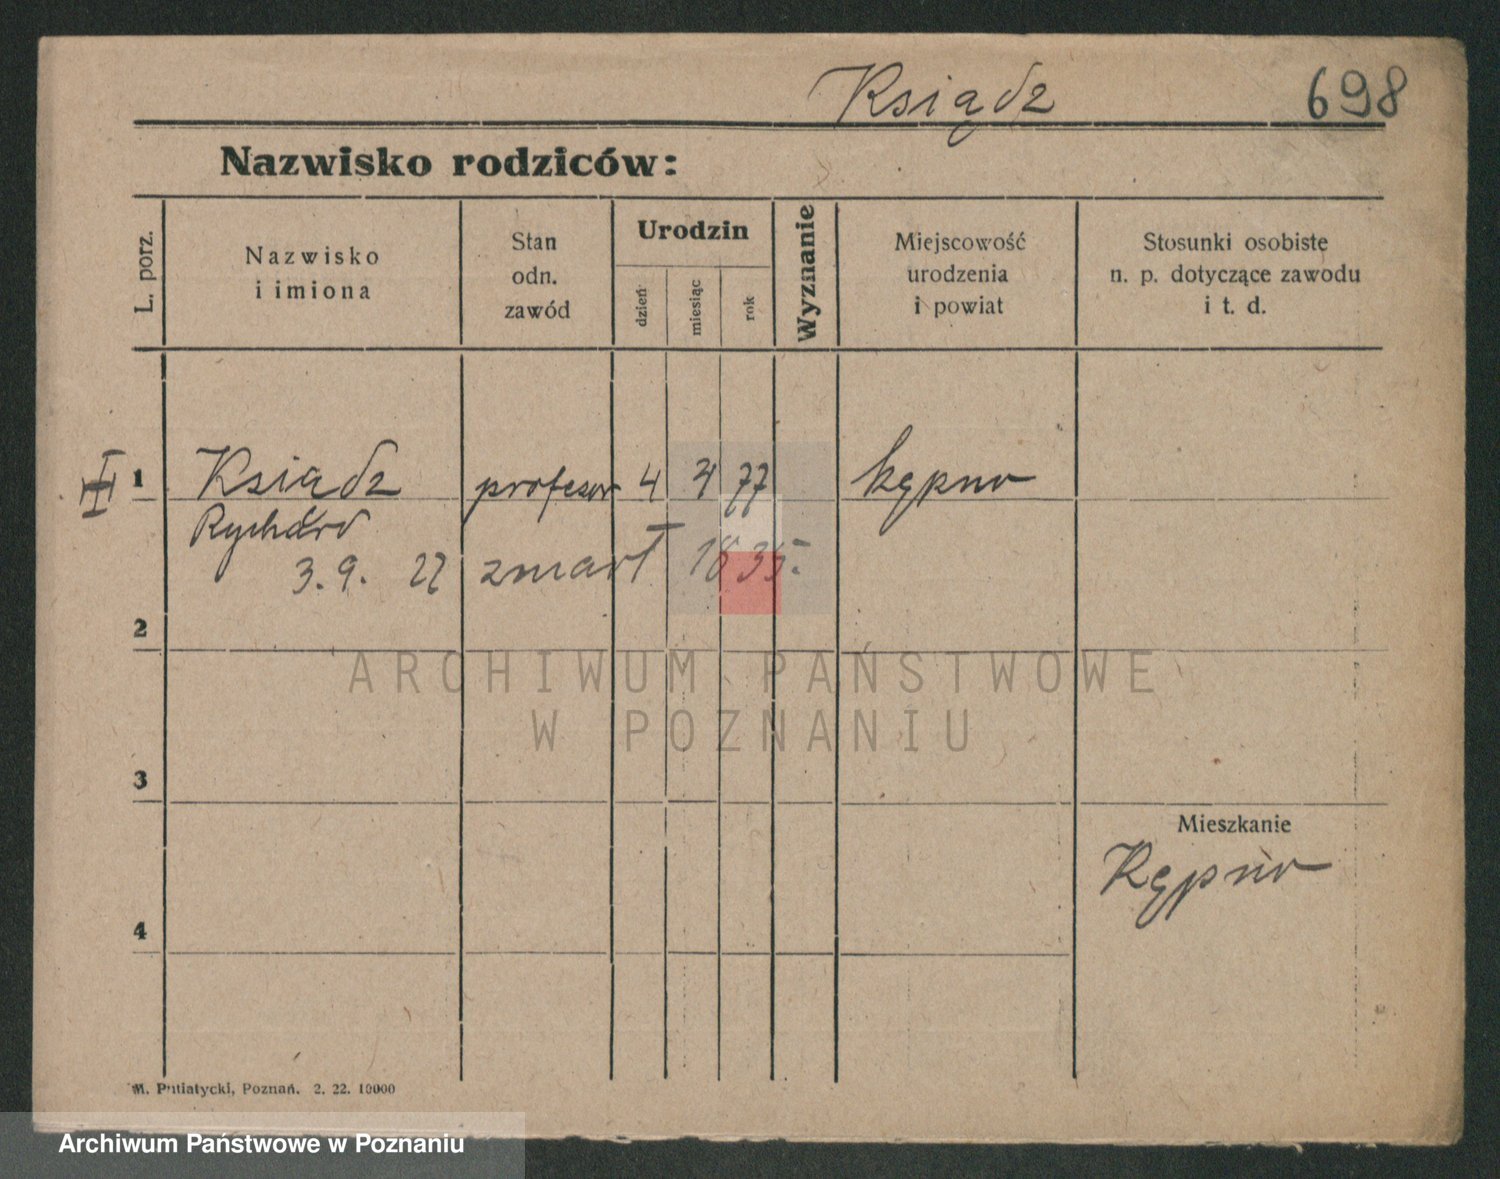 Ksiądz 698
Nazwisko rodziców:
L. porz.
Nazwisko
i imiona
Stan
odn.
zawód
Urodzin
dzień
miesiąc
rok
Wyznanie
Miejscowość
urodzenia
i powiat
Stosunki osobiste
n. p. dotyczące zawodu
i t. d.
1 Ksiądz profesor 4 77 Kępno
3. 9. 27 zmarł
2
ARCHIWUM PAŃSTWOWE
W POZNANIU
3
Mieszkanie
Kępno
4
M. Putiatycki, Poznań. 2. 22. 10000
Archiwum Państwowe w Poznaniu